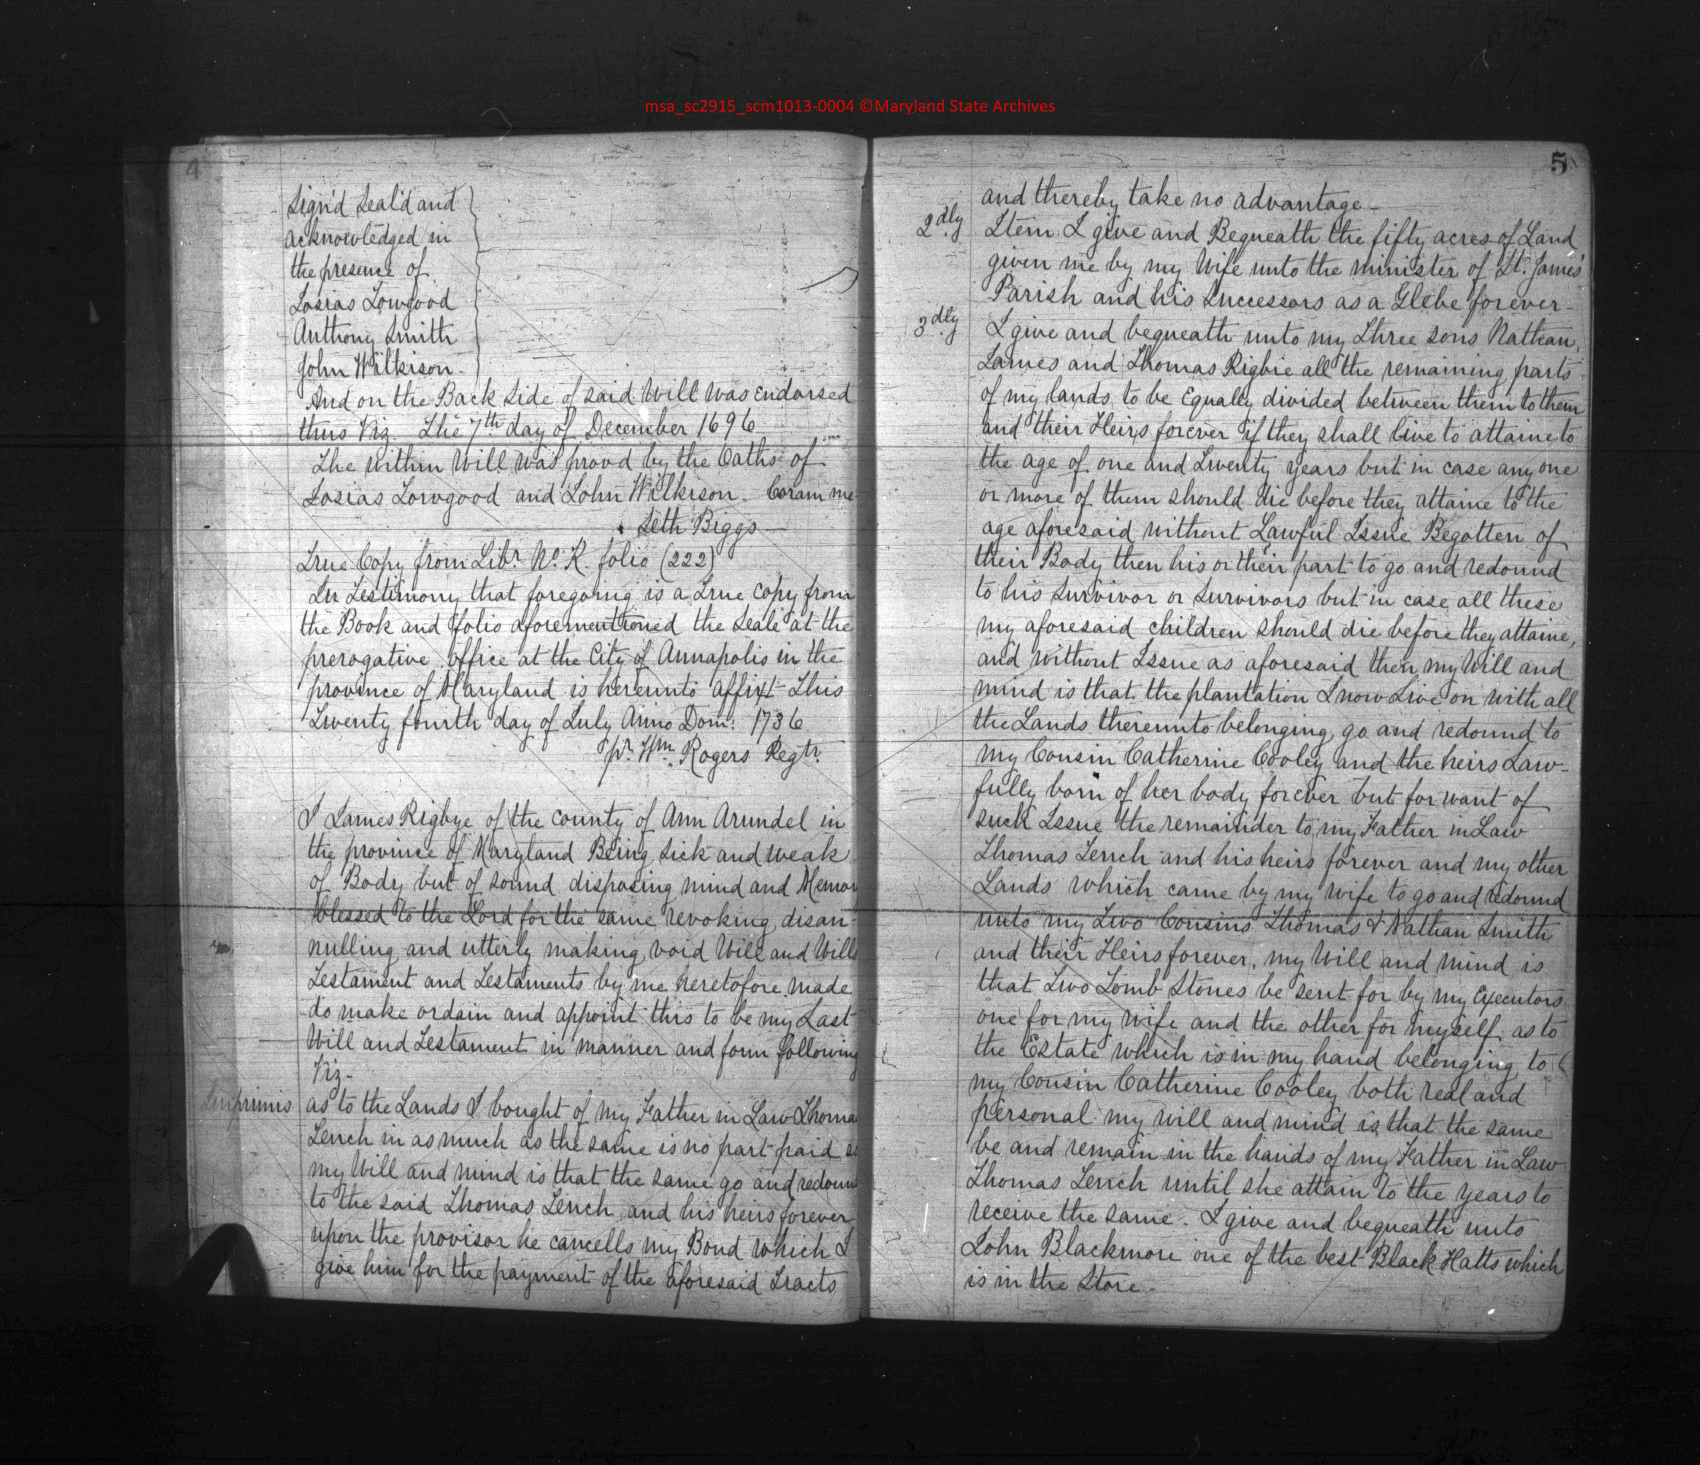 msa_sc2915_scm1013-0004 ©Maryland State Archives
4
Sign'd Seal'd and
acknowledged in
the presence of
Josias Towgood
Anthony Smith
John Wilkison
And on the Back Side of said Will was Endorsed
thus Viz. The 7th day of December 1696
The within Will was provd by the Oaths of
Josias Towgood and John Wilkison. Coram me
Seth Biggs
True Copy from Libr. No. K. folio (222)
In Testimony that foregoing is a True Copy from
the Book and folio aforementioned the Seale at the
prerogative office at the City of Annapolis in the
province of Maryland is hereunto affixt This
Twenty fourth day of July Anno Dom: 1736
pr. Wm. Rogers Regtr.
I James Rigbye of the county of Ann Arundel in
the province of Maryland Being Sick and weak
of Body but of sound disposing mind and Memor
blessed to the Lord for the same revoking disan-
nulling and utterly making void Will and Wills
Testament and Testaments by me heretofore made
do make ordain and appoint this to be my Last
Will and Testament in manner and form following
Viz-
Imprimis as to the Lands I bought of my Father in Law Thomas
Tench in as much as the same is no part paid so
my Will and mind is that the same go and redound
to the said Thomas Tench and his heirs forever
upon the provisor he cancells my Bond which I
give him for the payment of the aforesaid Tracts
5
and thereby take no advantage-
2dly Item I give and Bequeath the fifty acres of Land
given me by my Wife unto the minister of St. James'
Parish and his Successors as a Glebe forever-
3dly I give and bequeath unto my Three sons Nathan,
James and Thomas Rigbie all the remaining parts
of my lands to be Equally divided between them to them
and their Heirs forever if they shall live to attaine to
the age of one and Twenty years but in case any one
or more of them should die before they attaine to the
age aforesaid without Lawful Issue Begotten of
their Body then his or their part to go and redound
to his Survivor or Survivors but in case all these
my aforesaid children should die before they attaine,
and without Issue as aforesaid then my Will and
mind is that the plantation I now Live on with all
the Lands thereunto belonging go and redound to
my Cousin Catherine Cooley and the heirs Law-
fully born of her body forever but for want of
such Issue the remainder to my Father in Law
Thomas Tench and his heirs forever and my other
Lands which came by my wife to go and redound
unto my Two Cousins Thomas & Nathan Smith
and their Heirs forever, my Will and mind is
that Two Tomb Stones be sent for by my Executors
one for my wife and the other for myself as to
the Estate which is in my hand belonging to
my Cousin Catherine Cooley both real and
personal my will and mind is that the same
be and remain in the hands of my Father in Law
Thomas Tench until she attain to the years to
receive the same. I give and bequeath unto
John Blackmore one of the best Black Hatts which
is in the Store-